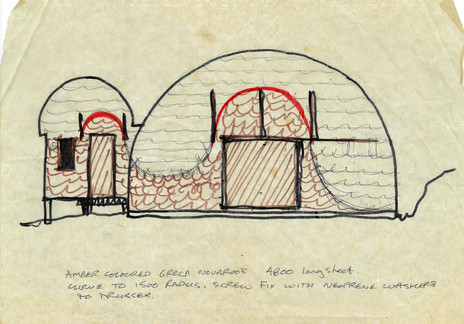 AMBER COLOURED GRECA NOVAROOF 4800 long sheet.
CURVE TO 1500 RADIUS. SCREW FIX WITH NEOPRENE WASHERS
TO TRUSSES.